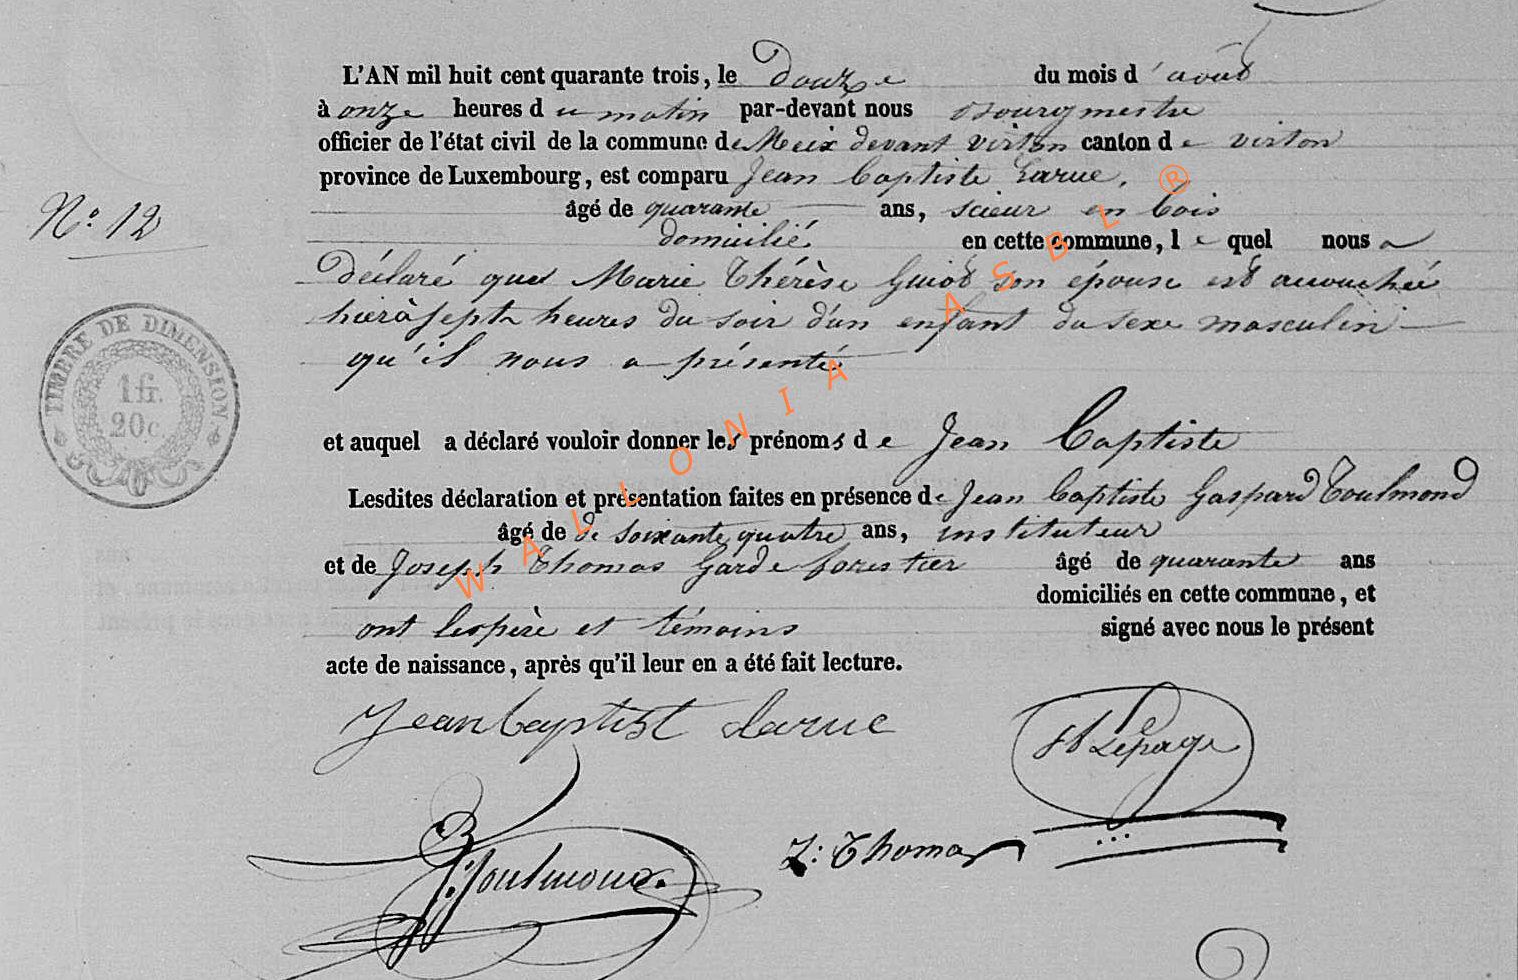 L'AN mil huit cent quarante trois, le Douze du mois d'août
à onze heures du matin par-devant nous Bourgmestre
officier de l'état civil de la commune de Meix devant virton canton de virton
province de Luxembourg, est comparu Jean Baptiste Larue,
N.o 12
âgé de quarante ans, scieur en bois
domicilié en cette commune, lequel nous a
déclaré que Marie Thérèse Guiot son épouse est accouchée
hier à sept heures du soir d'un enfant du sexe masculin
qu'il nous a présenté
TIMBRE DE DIMENSION
1 fr.
20 c.
et auquel a déclaré vouloir donner les prénoms de Jean Baptiste
Lesdites déclaration et présentation faites en présence de Jean Baptiste Gaspard Toulmond
âgé de de soixante quatre ans, instituteur
et de Joseph Thomas Garde forestier âgé de quarante ans
domiciliés en cette commune, et
ont les père et témoins signé avec nous le présent
acte de naissance, après qu'il leur en a été fait lecture.
Jean baptist Larue
Lepage
J: Thomas
Toulmond.
WALLONIA ASBL ®